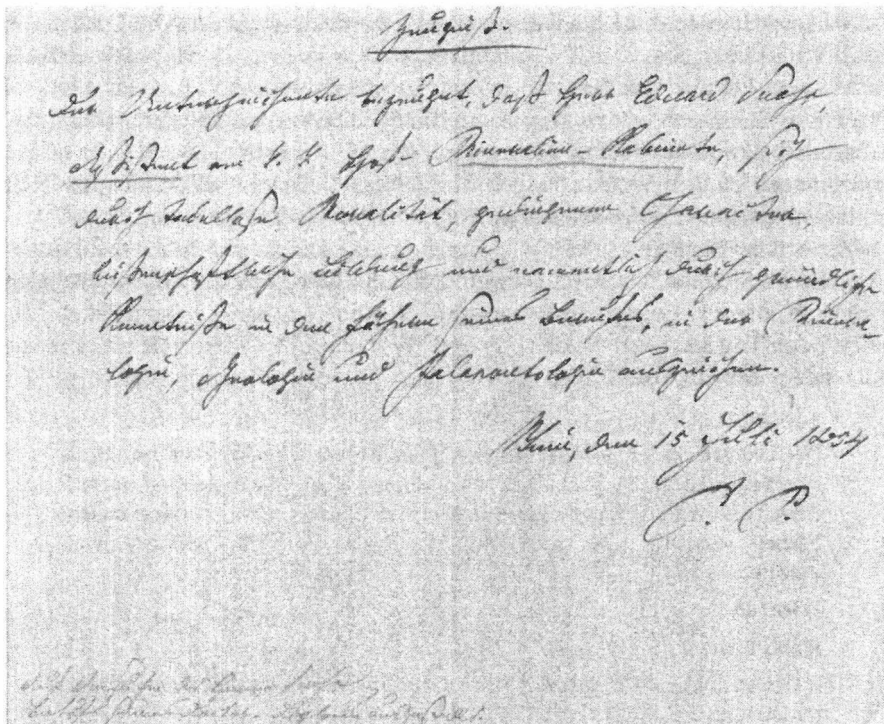 Zeugniß.
Der Unterzeichnete bezeuget, daß Herr Eduard Sueß,
Assistent am k. k. Hof-Mineralien-Kabinete, sich
durch tadellose Moralität, gediegenen Character,
wissenschaftliche Bildung und namentlich durch gründliche
Kenntniße in den Fächern seines Berufes, in der Minera-
logie, Geologie und Palaeontologie auszeichne.
Wien, den 15 Juli 1854
P. P.